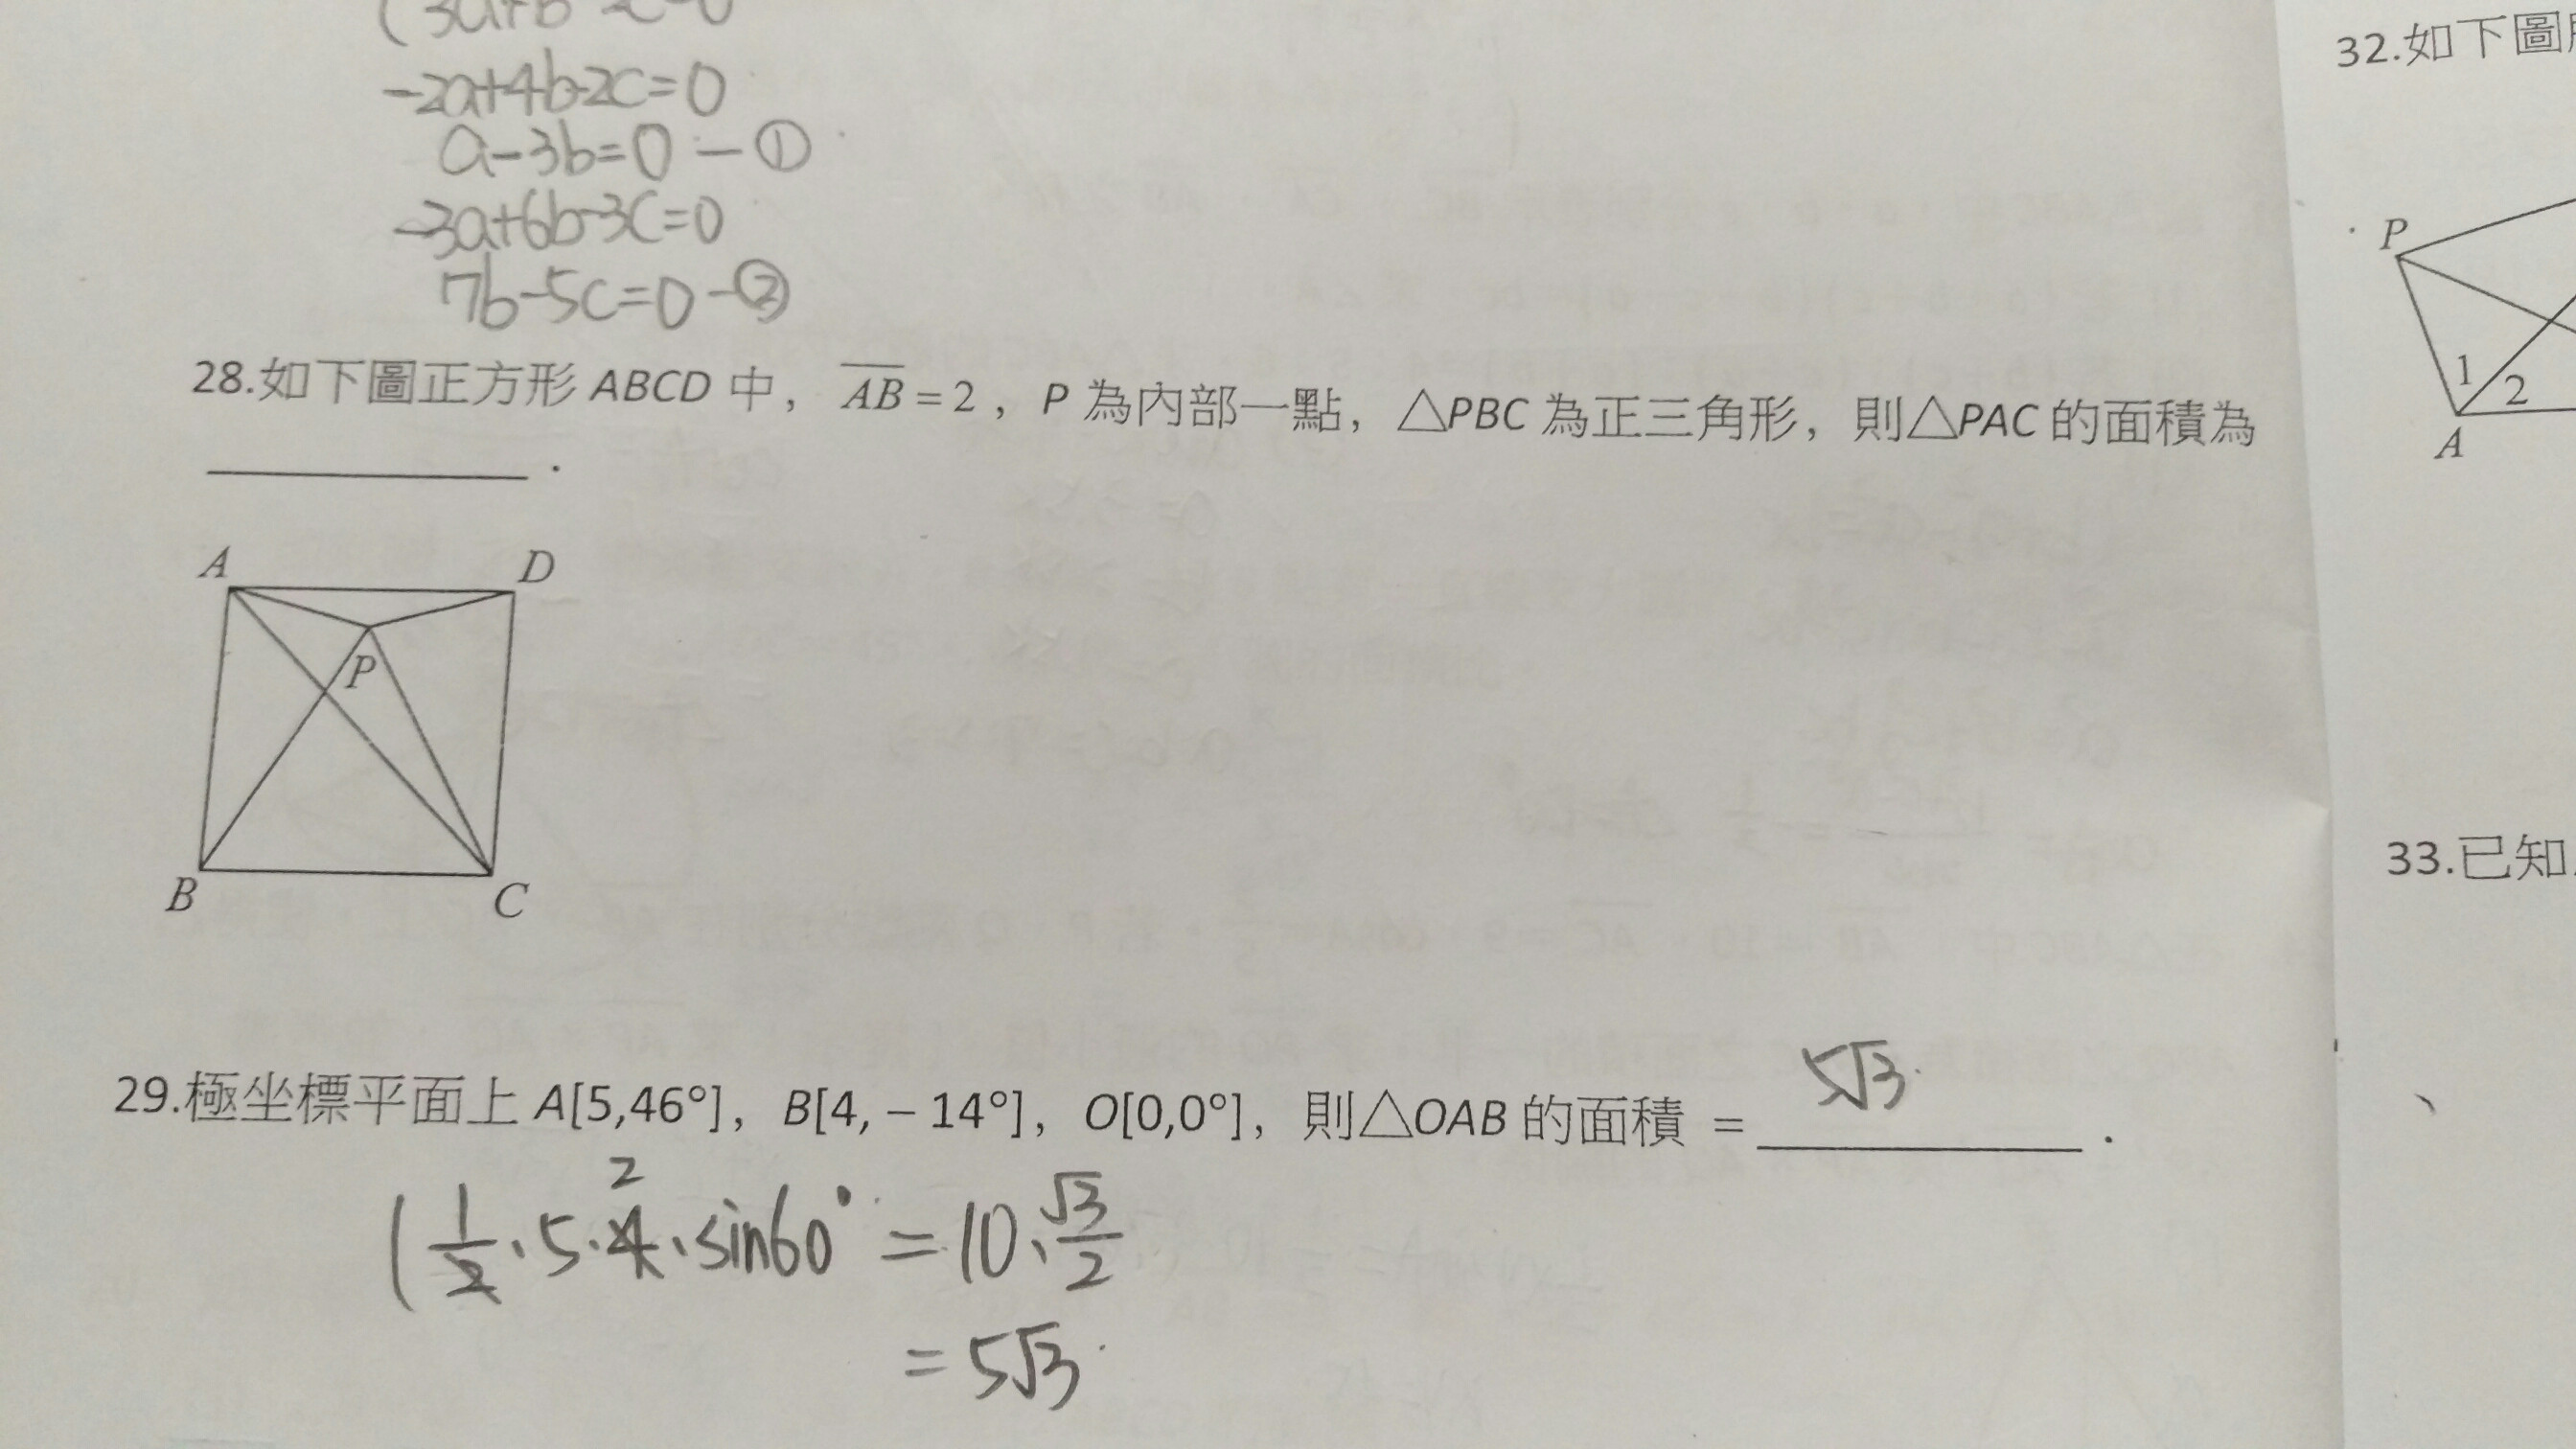 -2a+4b-2c=0
a-3b=0 -①
-3a+6b-3c=0
7b-5c=0 -②
28.如下圖正方形 ABCD 中，AB = 2，P 為內部一點，△PBC 為正三角形，則△PAC 的面積為
________．
A D
P
B C
29.極坐標平面上 A[5,46°]，B[4, – 14°]，O[0,0°]，則△OAB 的面積 = 5√3．
2
( 1/2 · 5 · 4 · sin60° = 10 · √3/2
= 5√3
32.如下圖
P
1 2
A
33.已知